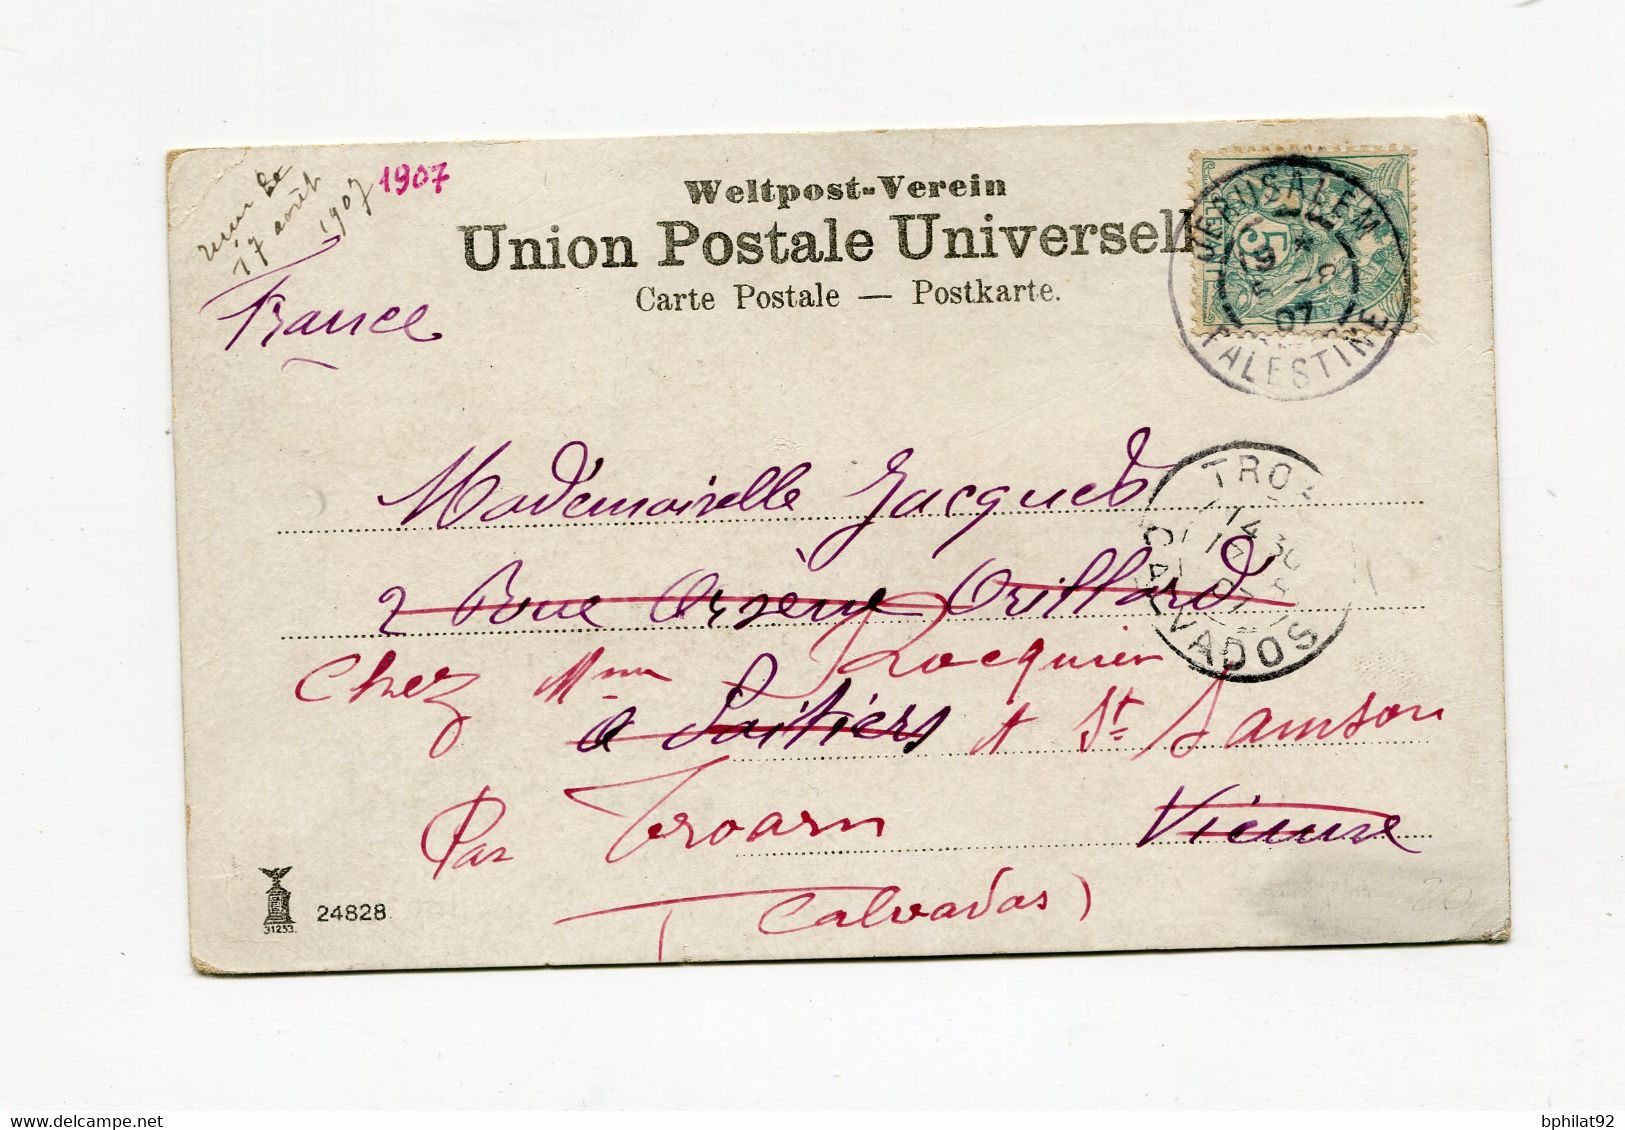 reçu le
17 août
1907
1907
France
Weltpost-Verein
Union Postale Universelle
Carte Postale — Postkarte.
JERUSALEM
07
PALESTINE
5
Mademoiselle Jacques
2 Rue Arsène Orillard
Chez Mme Locquier
à Poitiers à St. Samson
Par Troarn Vienne
(Calvados)
TROA
14 30
17 8
07
CALVADOS
24828
31253.
bphilat92